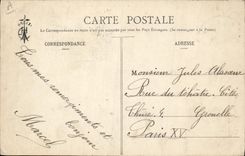 CARTE POSTALE
La Correspondance au recto n'est pas acceptée par tous les Pays Étrangers. (Se renseigner à la Poste)
CORRESPONDANCE
ADRESSE
Tous mes remerciements et
bonjour
Marcel
Monsieur Jules
Rue du théâtre
Grenelle
Paris XV